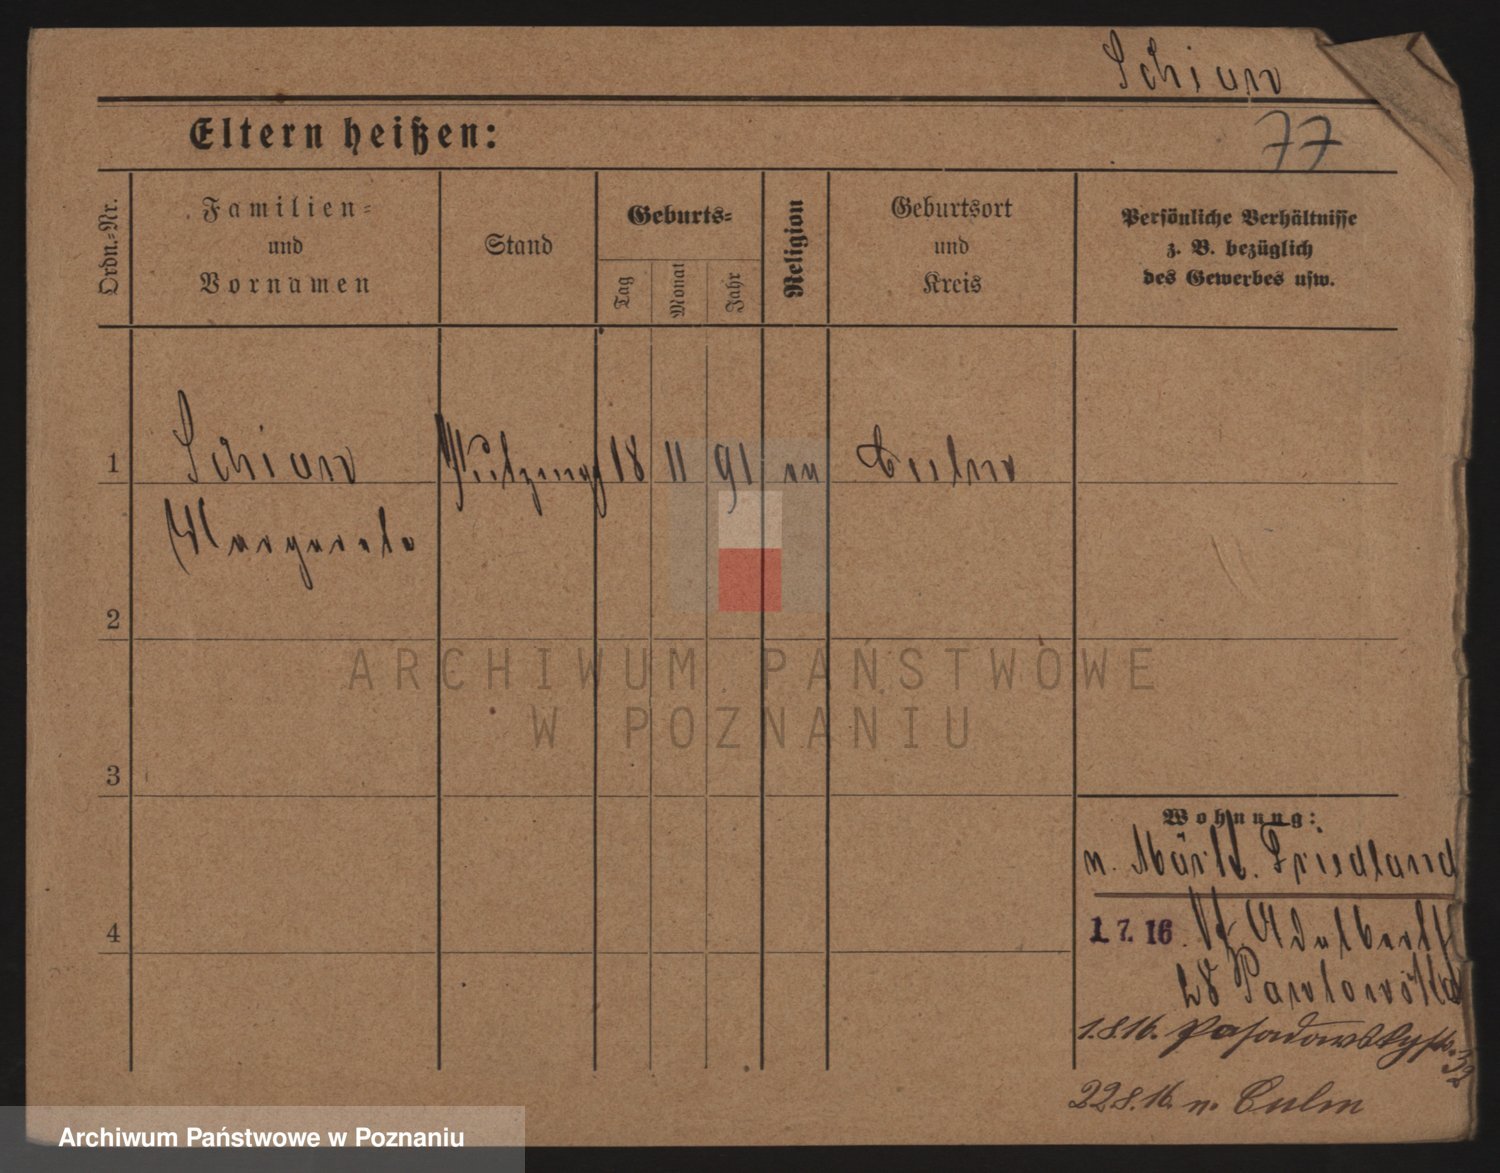 Schian
Eltern heißen:
77
Ordn.-Nr.
Familien-
und
Vornamen
Stand
Geburts-
Tag
Monat
Jahr
Religion
Geburtsort
und
Kreis
Persönliche Verhältnisse
z. B. bezüglich
des Gewerbes usw.
1
Schian
18 11 91
Margarete
2
ARCHIWUM PAŃSTWOWE
W POZNANIU
3
Wohnung:
n. Märk. Friedland
4
1. 7. 16. Adalbertst
28 Pawlowska
1.8.16. Posadowskystr. 32
22.8.16. n. Culm
Archiwum Państwowe w Poznaniu